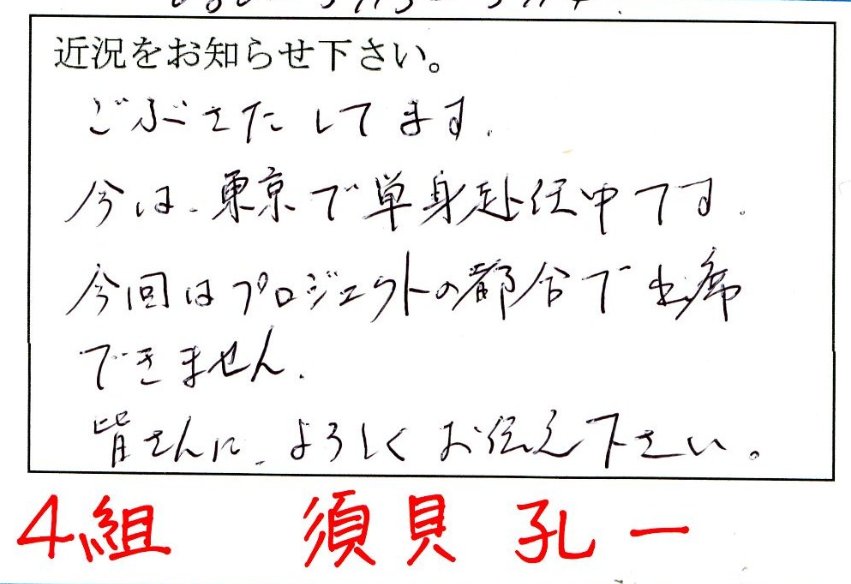 近況をお知らせ下さい。
ごぶさたしてます.
今は、東京で単身赴任中です.
今回はプロジェクトの都合で出席
できません.
皆さんに、よろしくお伝え下さい。
4組 須貝 孔一